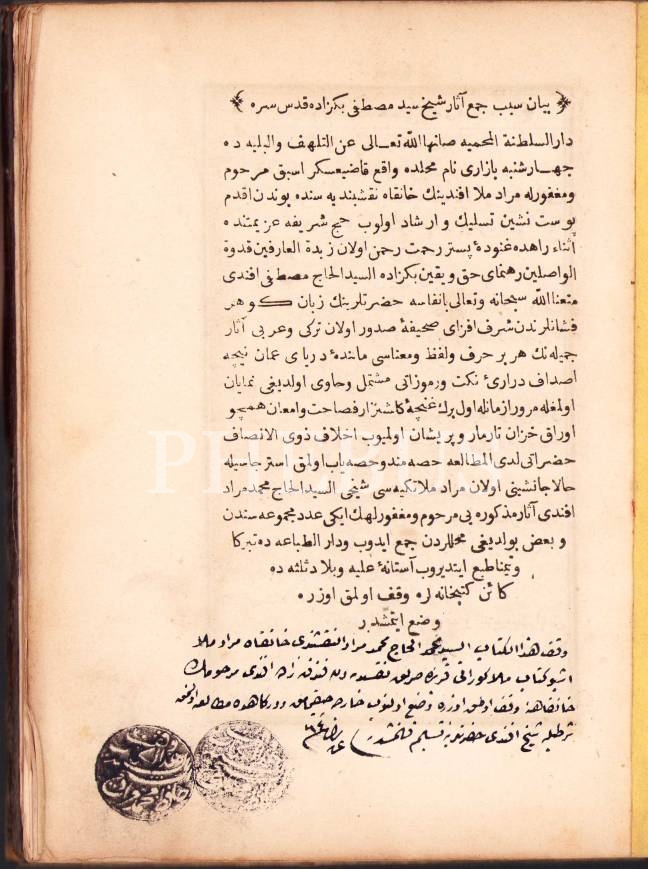 بيان سبب جمع آثار شيخ سيد مصطفى بكزاده قدس سره
دار السلطنة المحميه صانها الله تعالى عن التلهف والبليه ده
چهارشنبه بازارى نام محلده واقع قاضيعسكر اسبق مرحوم
ومغفورله مراد ملا افندينك خانقاه نقشبنديه سنده بوندن اقدم
پوست نشين تسليك وارشاد اولوب حج شريفه عزيمتنده
اثناء راهده غنودهٔ بستر رحمت رحمن اولان زبدة العارفين قدوة
الواصلين رهنماى حق ويقين بكزاده السيد الحاج مصطفى افندى
متعنا الله سبحانه وتعالى بانفاسه حضرتلرينك زبان كوهر
فشانلرندن شرف افزاى صحيفهٔ صدور اولان تركى وعربى آثار
جميله نك هر بر حرف ولفظ ومعناسى مانندهٔ درياى عمان نيچه
اصداف درارئ نكت ورموزاتى مشتمل وحاوى اولديغى نمايان
اولمغله مرور ازمانله اول برك غنچهٔ كلشنزار فصاحت وامعان همچو
اوراق خزان تارمار وپريشان اولميوب اخلاف ذوى الانصاف
حضراتى لدى المطالعه حصه مند وحصه ياب اولمق استرجاسيله
حالا جانشينى اولان مراد ملا تكيه سى شيخى السيد الحاج محمد مراد
افندى آثار مذكوره يى مرحوم ومغفورلهك ايكى عدد مجموعه سندن
وبعض بولديغى محللردن جمع ايدوب ودار الطباعه ده تبركا
وتيمنا طبع ايتديروب آستانهٔ عليه وبلاد ثلثه ده
كائن كتبخانه لره وقف اولمق اوزره
وضع ايتمشدر
وقف هذا الكتاب السيد الحاج محمد مراد النقشبندى خانقاه مراد ملا
اشبو كتاب ملا كورانى قربنده افندى مرحومك
خانقاهنه وقف اولمق اوزره وضع اولنوب خارجه چيقمامق ودركاهده مطالعه اولنمق
شرطيله شيخ افندى حضرتلرينه تسليم قلنمشدر
PHEBUS